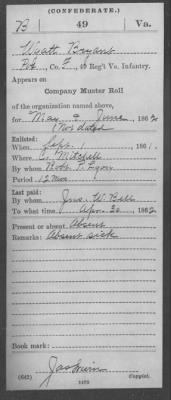 (CONFEDERATE.)
B 49 Va.
Wyatt Bryant
Pvt., Co. F, 49 Reg't Va. Infantry.
Appears on
Company Muster Roll
of the organization named above,
for May & June, 1862
(Not dated
Enlisted:
When Sept. 1, 1861.
Where C. Mitchell
By whom Robt. Lyon
Period 12 Mos
Last paid:
By whom Jno. W. Bell
To what time Apr. 30, 1862
Present or absent Absent
Remarks: Absent sick
Book mark:
(642) Copyist.